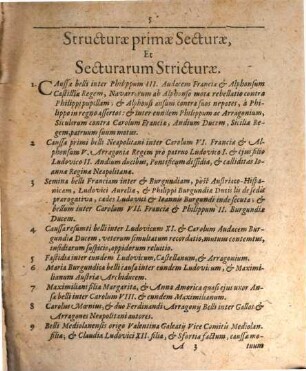 5
Structuræ primæ Secturæ,
Et
Secturarum Stricturæ.
1. Caussa belli inter Philippum III. Audacem Francia & Alphonsum
Castillia Regem, Navarreorum ab Alphonso mota rebellatio contra
Philippi pupillam: & Alphonsi ausum contra suos nepotes, à Philip-
po in regno assertos: & inter eundem Philippum ac Arragonium,
Siculorum contra Carolum Francia, Andium Ducem, Sicilia Re-
gem, patratum funus motus.
2 Caussa primi belli Neapolitani inter Carolum VI. Francia & Al-
phonsum V. Arragonia Regem pro patruo Ludovico I. & ejus filio
Ludovico II. Andium ducibus, Pontificum dissidia, & calliditas Io-
anna Regina Neapolitana.
3 Semina belli Franciam inter & Burgundiam, post Austrio-Hispa-
nicam, Ludovici Aurelia, & Philippi Burgundia Ducis lis de sedis
prærogativa, cædes Ludovici & Ioannis Burgundi inde secuta: &
bellum inter Carolum VII. Francia & Philippum II. Burgundia
Ducem.
4 Caussa resumti belli inter Ludovicum XI. & Carolum Audacem Burgun-
dia Ducem, veterum simultatum recordatio, mutuus contemtus,
insiditarum suspicio, oppidorum reluctio.
5 Fastidia inter eundem Ludovicum, Castellanum, & Arragonium.
6 Maria Burgundica belli ansa inter eundem Ludovicum, & Maximi-
lianum Austria Archiducem.
7 Maximiliani filia Margarita, & Anna Amorica quasi ejus uxor An-
sa belli inter Carolum VIII. & eundem Maximilianum.
8 Carolus Monim, & duo Ferdinandi Arragony Belli inter Gallos &
Arragones Neapolitani autores.
9 Belli Mediolanensis origo Valentina Galeatij Vice Comitis Mediolan.
filia, & Claudia Ludovici XII. filia, & Sfortia factum, caussa me-
A 3 tuum